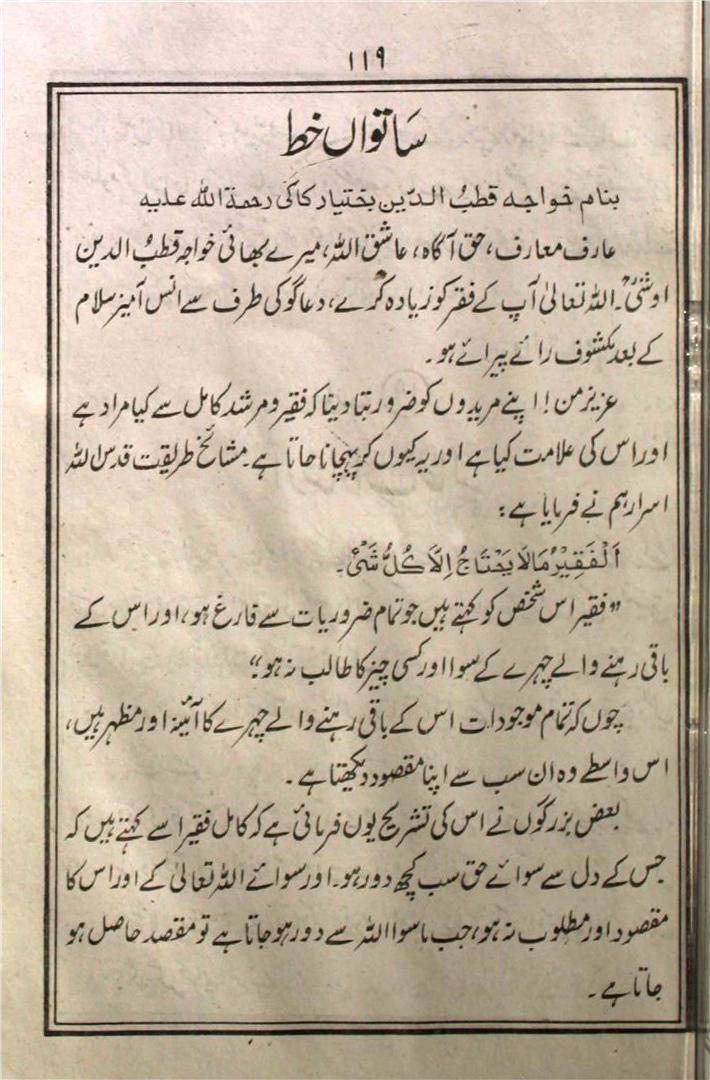 ۱۱۹
ساتواں خط
بنام خواجہ قطبُ الدّین بختیار کاکی رحمۃ اللہ علیہ
عارف معارف، حق آگاہ، عاشق اللہ، میرے بھائی خواجہ قطبُ الدین
اوشیؒ۔ اللہ تعالیٰ آپ کے فقر کو زیادہ کرے، دعاگو کی طرف سے انس آمیز سلام
کے بعد مکشوف رائے پیرائے ہو۔
عزیز من! اپنے مریدوں کو ضرور بتا دینا کہ فقیر و مرشد کامل سے کیا مراد ہے
اور اس کی علامت کیا ہے اور یہ کیوں کر پہچانا جاتا ہے۔ مشائخ طریقت قدس اللہ
اسرارہم نے فرمایا ہے:
اَلْفَقِیْرُ مَا لَا یَحْتَاجُ اِلَّا کُلُّ شَیْءٍ۔
”فقیر اس شخص کو کہتے ہیں جو تمام ضروریات سے فارغ ہو، اور اس کے
باقی رہنے والے چہرے کے سوا اور کسی چیز کا طالب نہ ہو“
چوں کہ تمام موجودات اس کے باقی رہنے والے چہرے کا آئینہ اور مظہر ہیں،
اس واسطے وہ ان سب سے اپنا مقصود دیکھتا ہے۔
بعض بزرگوں نے اس کی تشریح یوں فرمائی ہے کہ کامل فقیر اسے کہتے ہیں کہ
جس کے دل سے سوائے حق سب کچھ دور ہو۔ اور سوائے اللہ تعالیٰ کے اور اس کا
مقصود اور مطلوب نہ ہو، جب ماسوا اللہ سے دور ہو جاتا ہے تو مقصد حاصل ہو
جاتا ہے۔